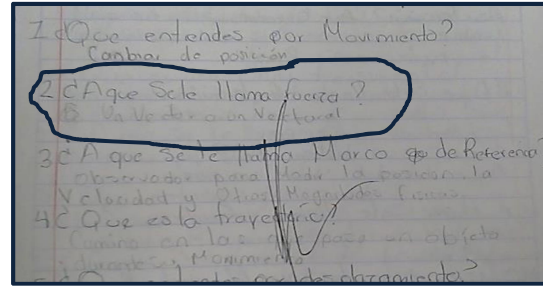 1 ¿Que entiendes por Movimiento?
Cambiar de posición
2 ¿A que Se le llama fuerza?
Es Un Vector o un Vectoral
3 ¿A que Se le llama Marco de Referencia
Observador para Medir la posicion, la
Velocidad y Otras Magnitudes fisicas
4 ¿Que es la trayectoria?
Camino en las que pasa un objeto
durante su Movimiento